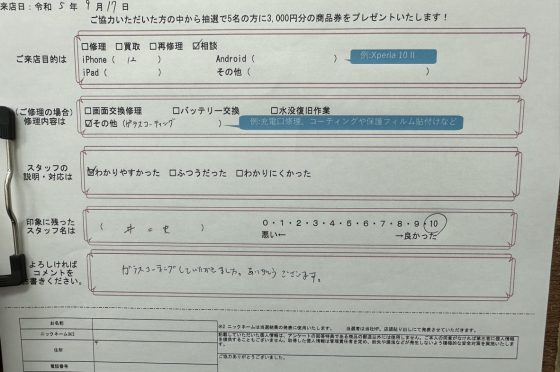 来店日：令和 5年 9月17日
ご協力いただいた方の中から抽選で5名の方に3,000円分の商品券をプレゼントいたします！
ご来店目的は
□修理 □買取 □再修理 ☑相談
iPhone（ 12 ） Android（ ） 例:Xperia 10Ⅱ
iPad（ ） その他（ ）
（ご修理の場合）
修理内容は
□画面交換修理 □バッテリー交換 □水没復旧作業
☑その他（ガラスコーティング ） 例:充電口修理、コーティングや保護フィルム貼付けなど
スタッフの
説明・対応は
☑わかりやすかった □ふつうだった □わかりにくかった
印象に残った
スタッフ名は
0・1・2・3・4・5・6・7・8・9・10
悪い← →良かった
よろしければ
コメントを
お書きください。
ガラスコーティングしていただきました。ありがとうございます。
お名前
ニックネーム※2
住所
電話番号
※2 ニックネームは当選結果の発表に使用いたします。
ご協力ありがとうございました。